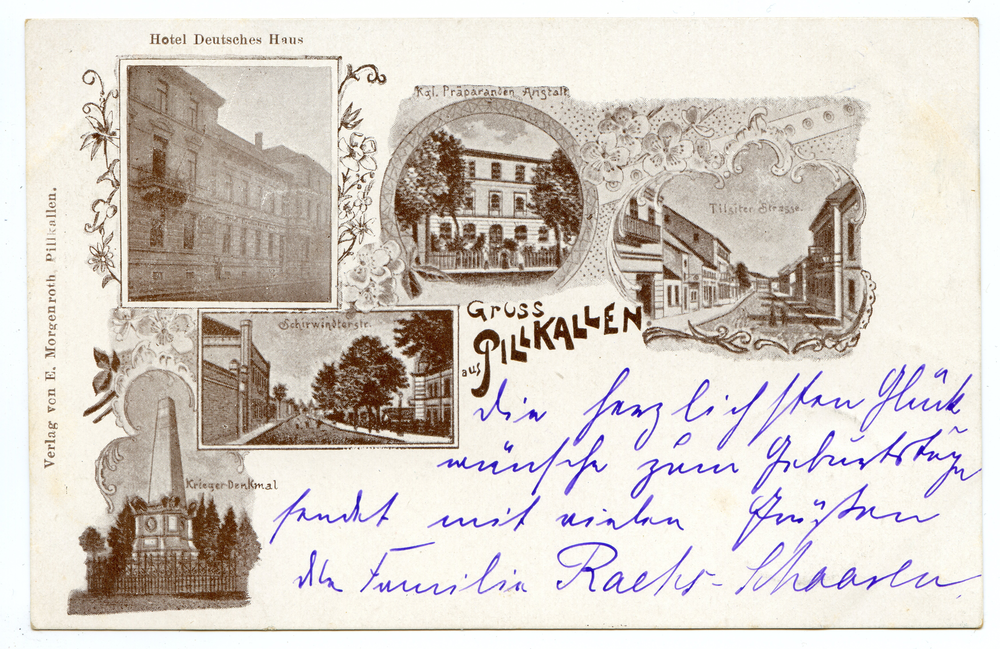 Hotel Deutsches Haus
Kgl. Präparanden Anstalt
Tilsiter Strasse.
Verlag von E. Morgenroth, Pillkallen.
Schirwindterstr.
Gruss
aus PILLKALLEN.
Krieger-Denkmal
Die herzlichsten Glück
wünsche zum Geburtstage
sendet mit vielen Grüßen
die Familie